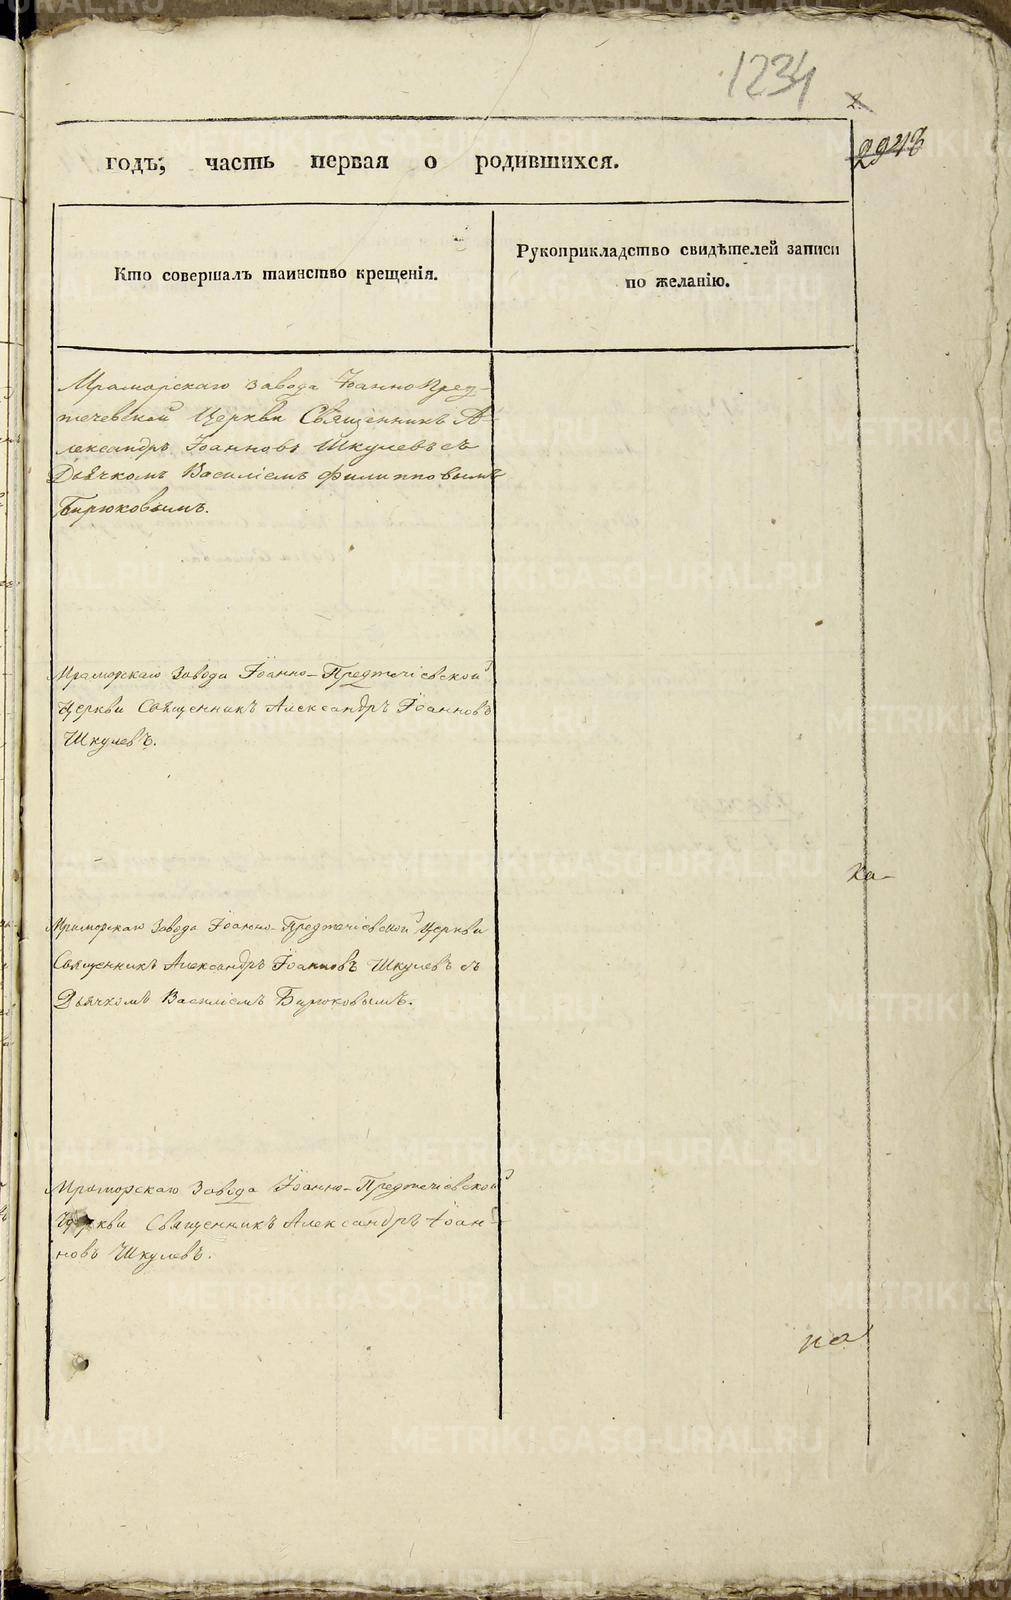 1234
2.
2942
годъ, часть первая о родившихся.
Кто совершалъ таинство крещенія.
Рукоприкладство свидѣтелей записи
по желанію.
Мраморскаго завода Іоанно Пред-
течевской Церкви Священникъ А-
лександръ Іоанновъ Шкулевъ съ
Дьячкомъ Василіемъ Филипповымъ
Бирюковымъ.
Мраморскаго Завода Іоанно-Предтечіевской
Церкви Священникъ Александръ Іоанновъ
Шкулевъ.
Мраморскаго Завода Іоанно-Предтечіевской Церкви
Священникъ Александръ Іоанновъ Шкулевъ съ
Дьячкомъ Василіемъ Бирюковымъ.
Ка-
Мраморскаго Завода Іоанно-Предтечіевской
Церкви Священникъ Александръ Іоан-
новъ Шкулевъ.
по
METRIKI.GASO-URAL.RU